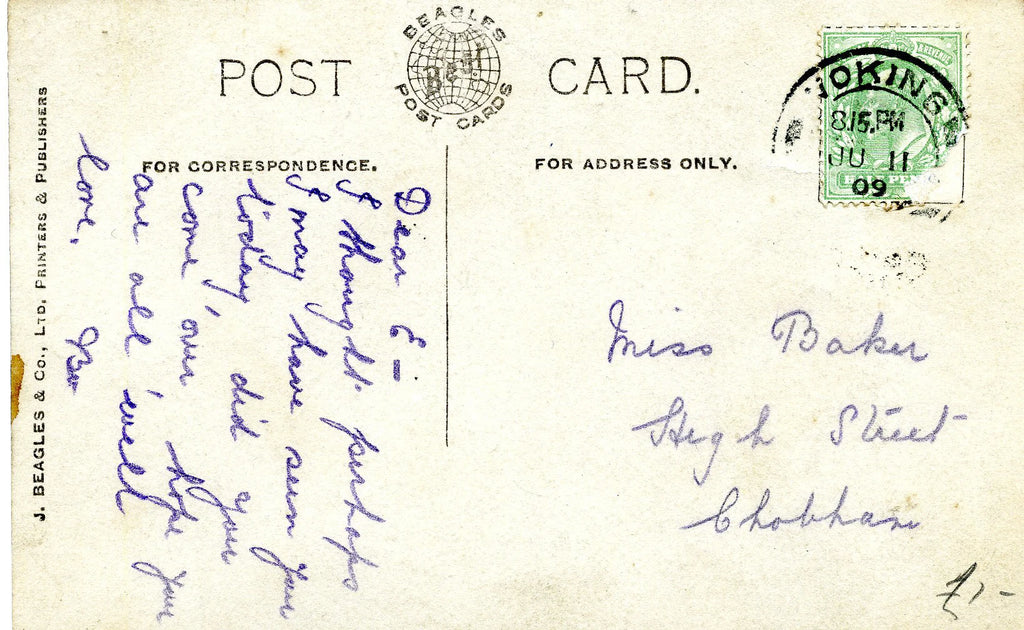 POST CARD.
BEAGLES
Best
POST CARDS
FOR CORRESPONDENCE.
FOR ADDRESS ONLY.
J. BEAGLES & CO., LTD, PRINTERS & PUBLISHERS
Dear E—
I thought perhaps
I may have seen you
today, did you
come, our hope you
are all well
love,
& REVENUE
WOKING
8.15.PM
JU 11
09
Miss Baker
High Street
Chobham
£1-